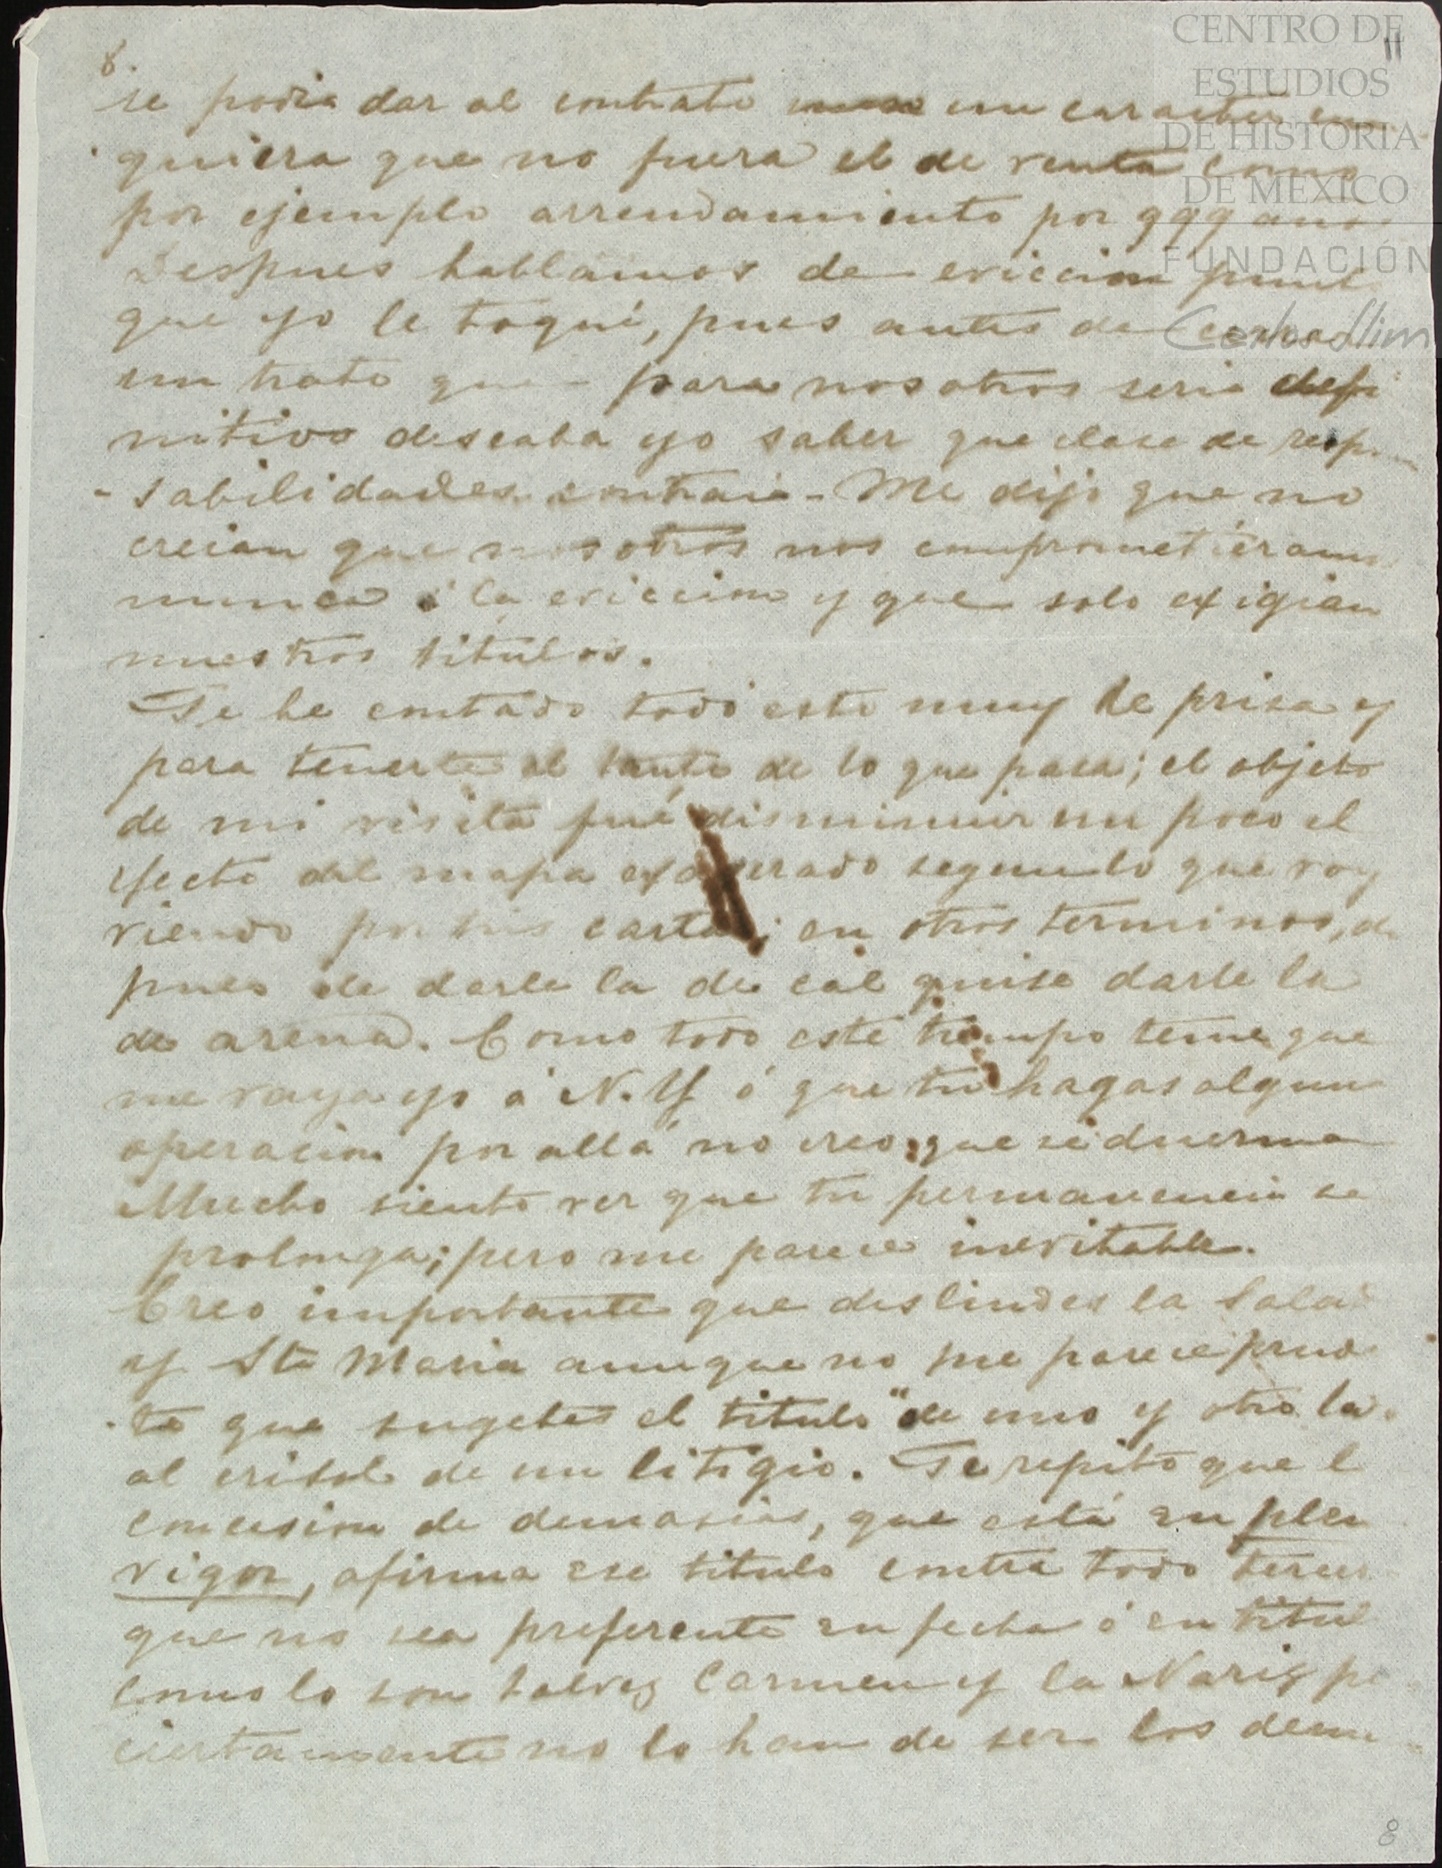 CENTRO DE
ESTUDIOS
DE HISTORIA
DE MEXICO
FUNDACIÓN
Carlos Slim
11
8.
se podia dar al contrato un caracter
quiera que no fuera el de venta como
por ejemplo arrendamiento por 999 año
Despues hablamos de eviccion punt
que yo le toqué, pues antes de
un trato que para nosotros seria defi
nitivo deseaba yo saber que clase de respon
sabilidades contraia - Me dijo que no
creian que nosotros nos comprometieramos
nunca á la eviccion y que solo exigian
nuestros titulos.
Te he contado todo esto muy de prisa y
para tenerte al tanto de lo que pasa; el objeto
de mi visita fué disminuir un poco el
efecto del mapa exagerado segun lo que voy
viendo por tus cartas; en otros terminos, des
pues de darle la de cal quise darle la
de arena. Como todo este tiempo teme que
me vaya yo á N.Y ó que tu hagas alguna
operacion por allá no creo que se duerma
Mucho siento ver que tu permanencia se
prolonga; pero me parece inevitable.
Creo importante que deslindes la Salad
y Sta Maria aunque no me parece pruden
te que sugetes el titulo de uno y otro lado
al crisol de un litigio. Te repito que l
concesion de demasias, que está en plen
vigor, afirma ese titulo contra todo tercer
que no sea preferente en fecha ó en titul
como lo son talvez Carmen y la Nariz pe
ciertamente no lo han de ser los dem
8